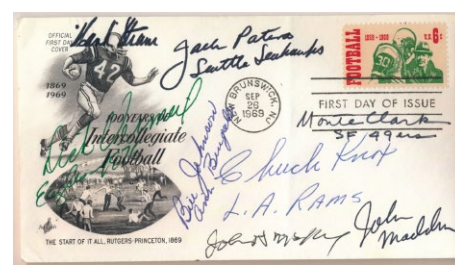 OFFICIAL
FIRST DAY
COVER
42
1869
1969
100 YEARS OF
Intercollegiate
Football
THE START OF IT ALL, RUTGERS-PRINCETON, 1869
Jack Patera
Seattle Seahawks
NEW BRUNSWICK, NJ
SEP
26
1969
FOOTBALL
1869-1969
U.S. 6¢
FIRST DAY OF ISSUE
Monte Clark
SF 49ers
Bill Johnson
Chuck Knox
L.A. RAMS
John
John Madden